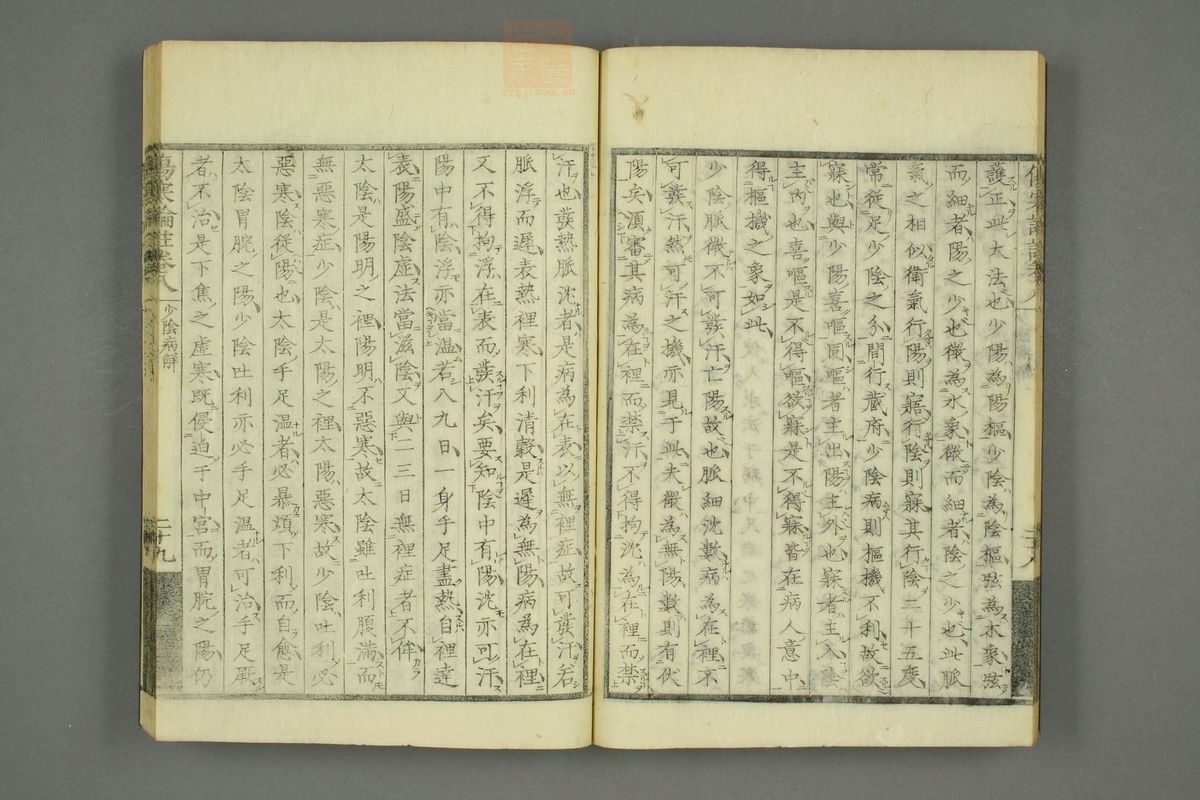 護正此大法也少陽為陽樞少陰為陰樞弦為木象弦
而細者陽之少也微為水象微而細者陰之少也此脈
氣之相似衛氣行陽則寤行陰則寐其行陰二十五度
常從足少陰之分間行藏府少陰病則樞機不利故欲
寐也與少陽喜嘔同嘔者主出陽主外也寐者主入陰
主內也喜嘔是不得嘔欲寐是不得寐皆在病人意中
得樞機之象如此
少陰脈微不可發汗亡陽故也脈細沈數病為在裡不
可發汗然可汗之機亦見于此夫微為無陽數則有伏
陽矣須審其病為在裡而禁汗不得拘沈為在裡而禁
汗也發熱脈沈者是病為在表以無裡症故可發汗若
脈浮而遲表熱裡寒下利清穀是遲為無陽病為在裡
又不得拘浮在表而發汗矣要知陰中有陽沈亦可汗
陽中有陰浮亦當溫若八九日一身手足盡熱自裡達
表陽盛陰虛法當滋陰又與二三日無裡症者不侔
太陰是陽明之裡陽明不惡寒故太陰雖吐利腹滿而
無惡寒症少陰是太陽之裡太陽惡寒故少陰吐利必
惡寒陰從陽也太陰手足溫者必暴煩下利而自愈是
太陰胃脘之陽少陰吐利亦必手足溫者可治手足厥
者不治是下焦之虛寒既侵迫于中宮而胃脘之陽仍
傷寒論註卷八
少陰病解
二十九
二十八
zyqj.coo.cn